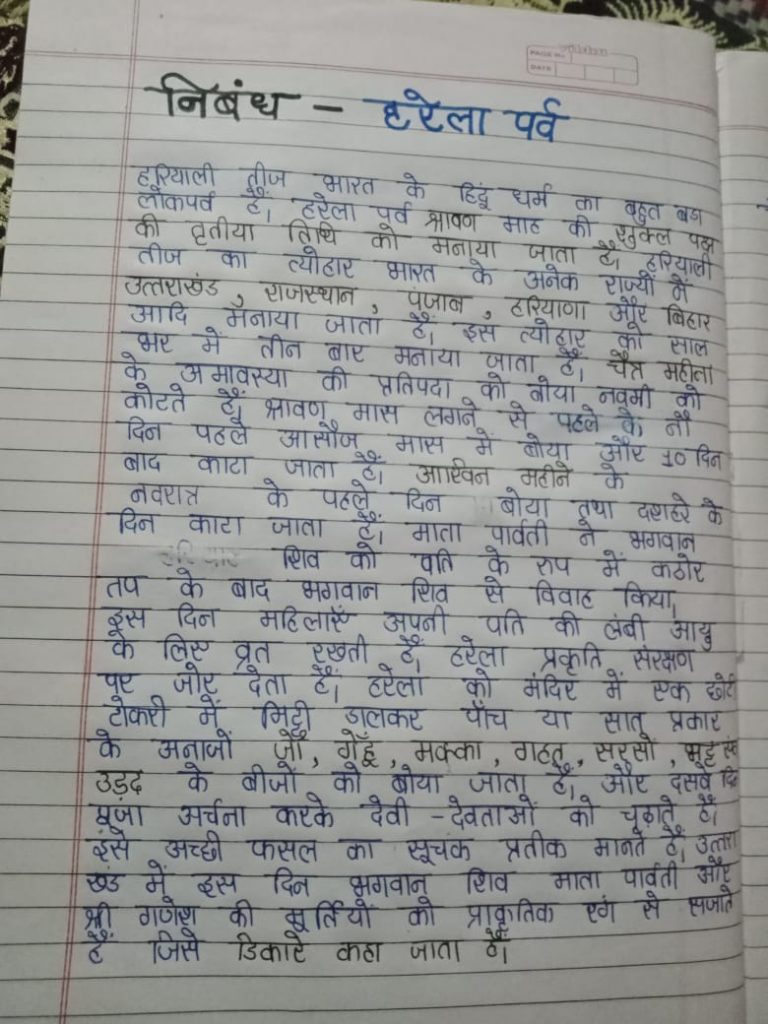 PAGE No.
DATE
निबंध - हरेला पर्व
हरियाली तीज भारत के हिंदू धर्म का बहुत बडा
लोकपर्व हैं। हरेला पर्व श्रावण माह की शुक्ल पक्ष
की तृतीया तिथि को मनाया जाता हैं। हरियाली
तीज का त्योहार भारत के अनेक राज्यों में
उत्तराखंड, राजस्थान, पंजाब, हरियाणा और बिहार
आदि मनाया जाता हैं। इस त्योहार को साल
भर में तीन बार मनाया जाता हैं। चैत्र महीना
के अमावस्या की प्रतिपदा को बोया नवमी को
कोटते हैं। श्रावण मास लगने से पहले के नौ
दिन पहले आसौज मास में बोया और 10 दिन
बाद काटा जाता हैं। आश्विन महीने के
नवरात्र के पहले दिन बोया तथा दशहरे के
दिन काटा जाता हैं। माता पार्वती ने भगवान
शिव को पति के रुप में कठोर
तप के बाद भगवान शिव से विवाह किया।
इस दिन महिलाएँ अपनी पति की लंबी आयु
के लिए व्रत रखती हैं। हरेला प्रकृति संरक्षण
पर जोर देता हैं। हरेला को मंदिर में एक छोटी
टोकरी में मिट्टी डालकर पाँच या सात प्रकार
के अनाजों जौ, गेहूँ, मक्का, गहत, सरसों,
उड़द के बीजों को बोया जाता हैं। और दसवें दिन
पूजा अर्चना करके देवी-देवताओं को चढ़ाते हैं।
इसे अच्छी फसल का सूचक प्रतीक मानते हैं। उत्तरा
खंड में इस दिन भगवान शिव माता पार्वती और
श्री गणेश की मूर्तियों को प्राकृतिक रंग से सजाते
हैं जिसे डिकारे कहा जाता हैं।